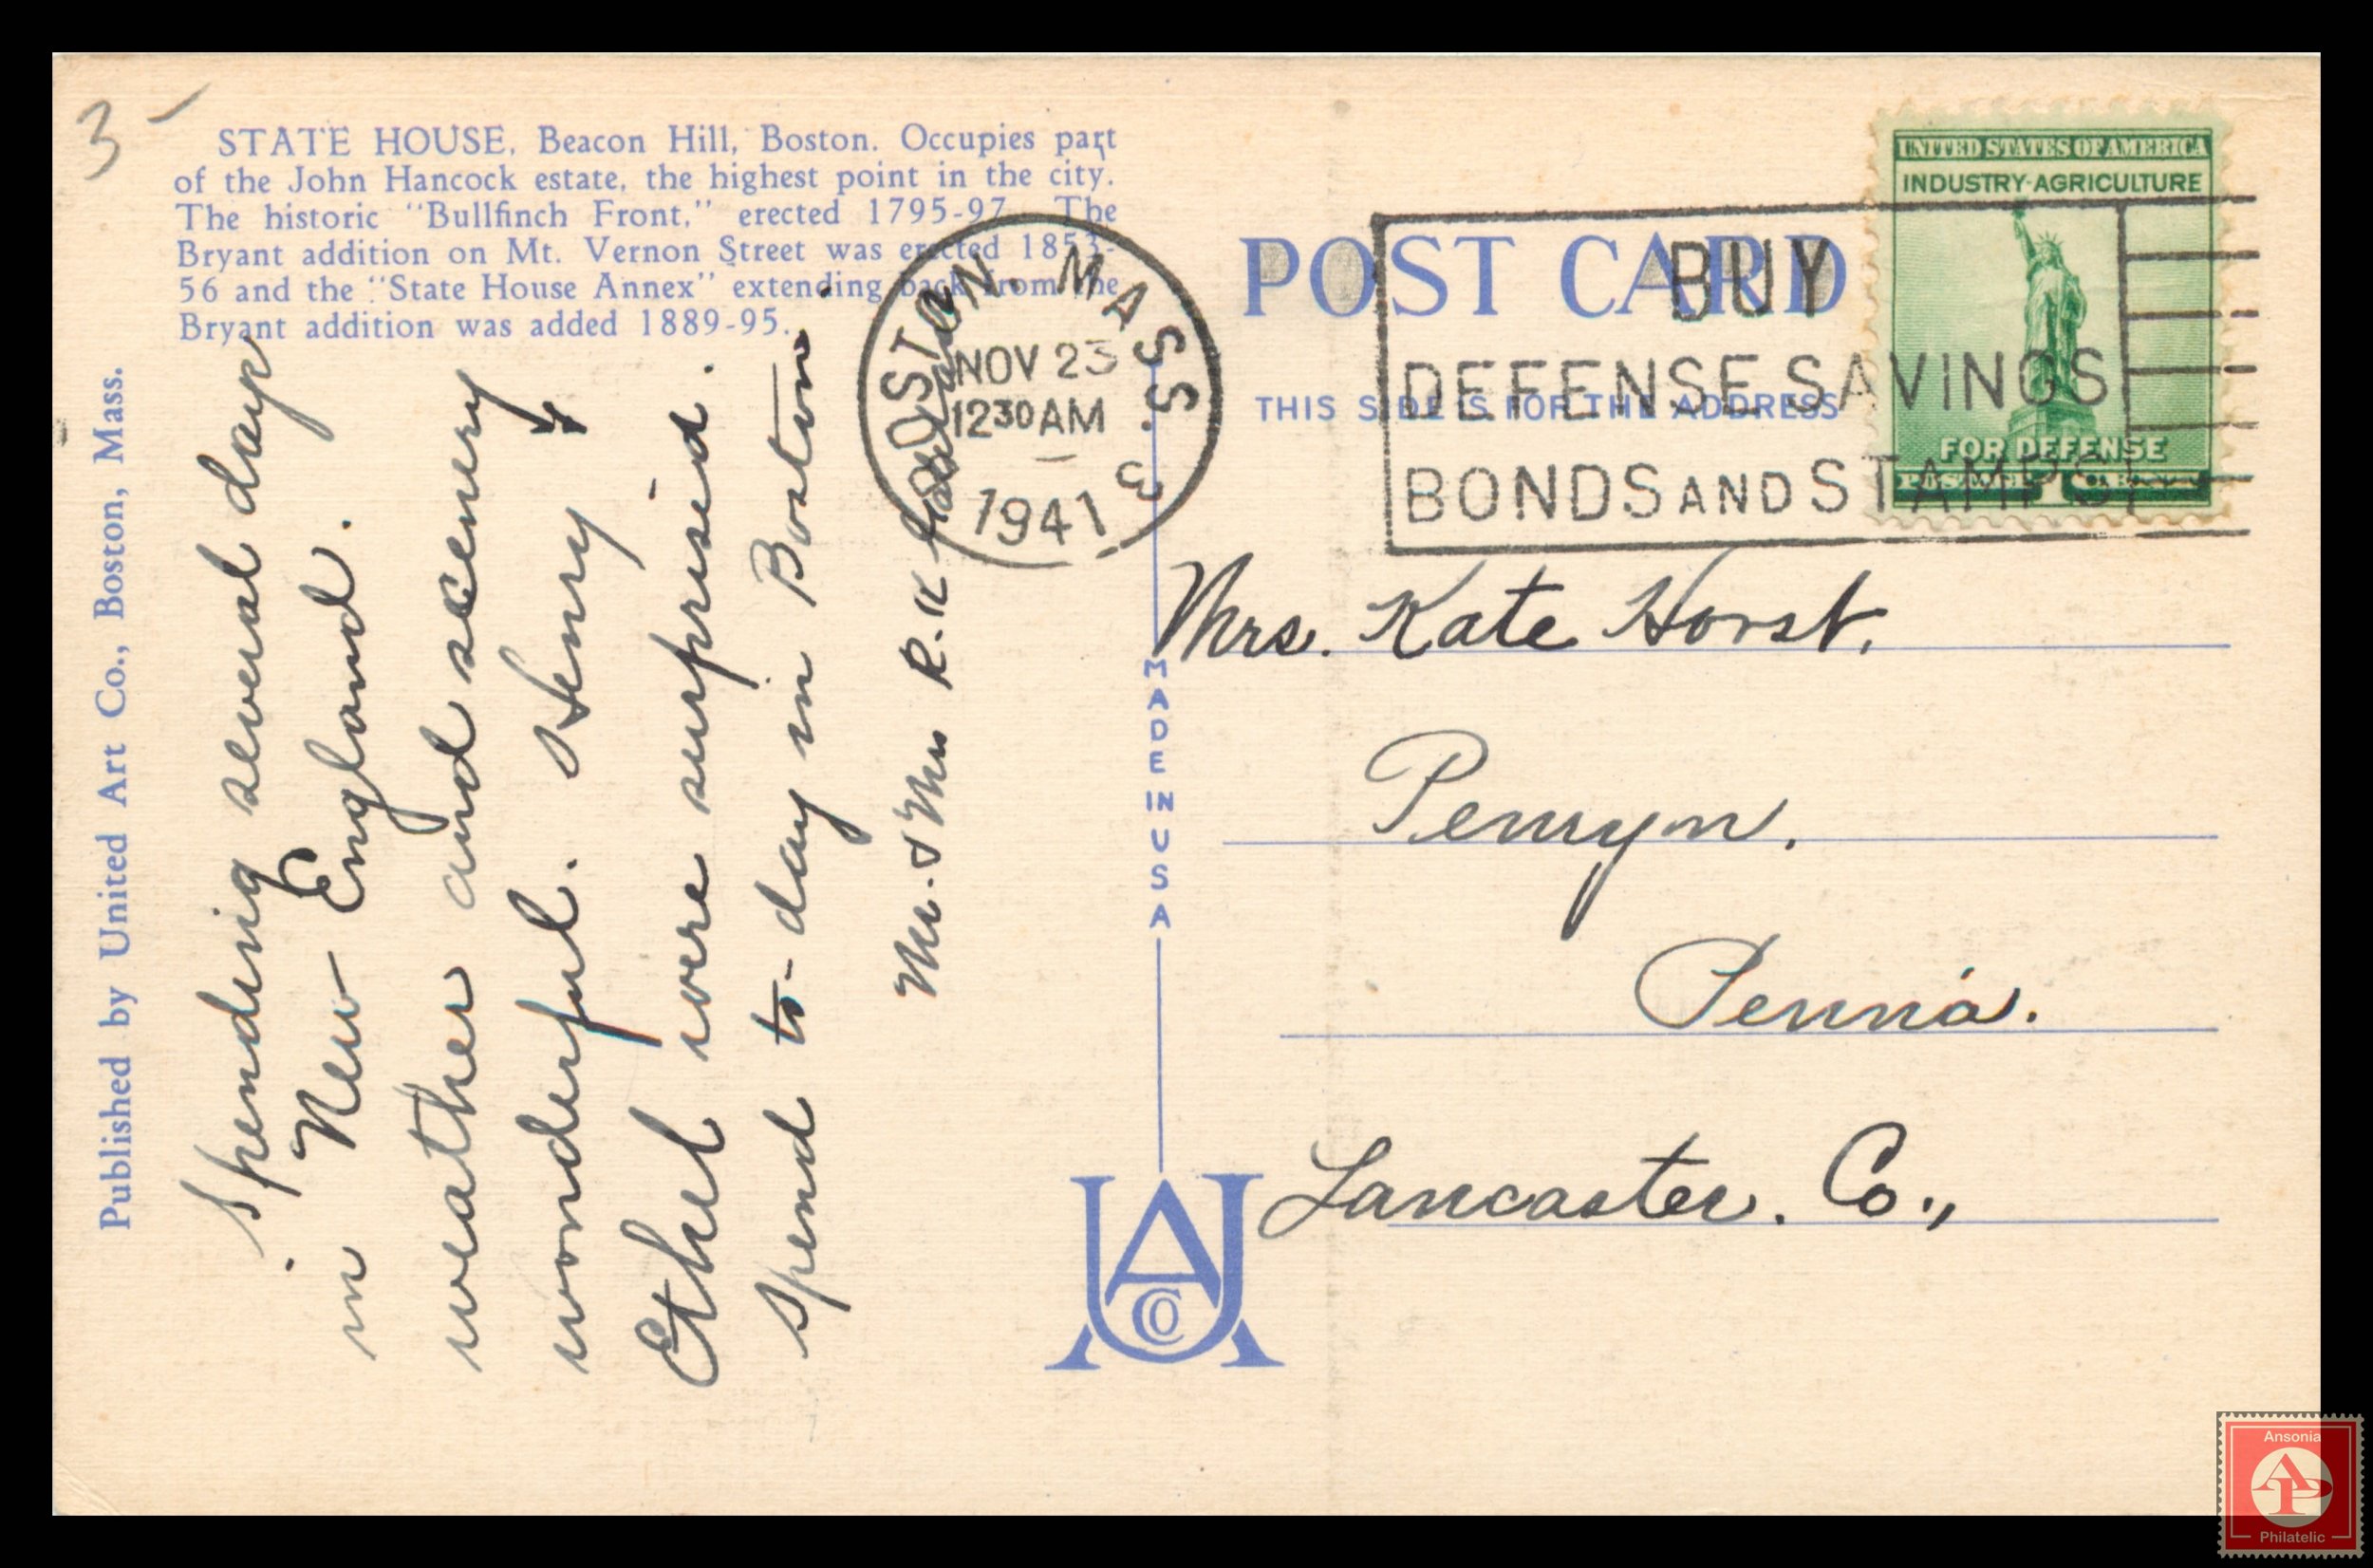 3-
STATE HOUSE, Beacon Hill, Boston. Occupies part
of the John Hancock estate, the highest point in the city.
The historic "Bullfinch Front," erected 1795-97. The
Bryant addition on Mt. Vernon Street was erected 1853-
56 and the "State House Annex" extending back from the
Bryant addition was added 1889-95.
Published by United Art Co., Boston, Mass.
Spending several days
in New England.
weather and scenery
wonderful. Henry &
Ethel were surprised.
Spend to-day in Boston.
Mr. & Mrs R.K.
BOSTON. MASS. 3
NOV 23
12 30 AM
1941
POST CARD
THIS SIDE IS FOR THE ADDRESS
BUY
DEFENSE SAVINGS
BONDS AND STAMPS
UNITED STATES OF AMERICA
INDUSTRY-AGRICULTURE
FOR DEFENSE
POSTAGE 1 CENT
MADE IN USA
Mrs. Kate Horst.
Penryn.
Penna.
Lancaster. Co.,
UACO
Ansonia
AP
Philatelic